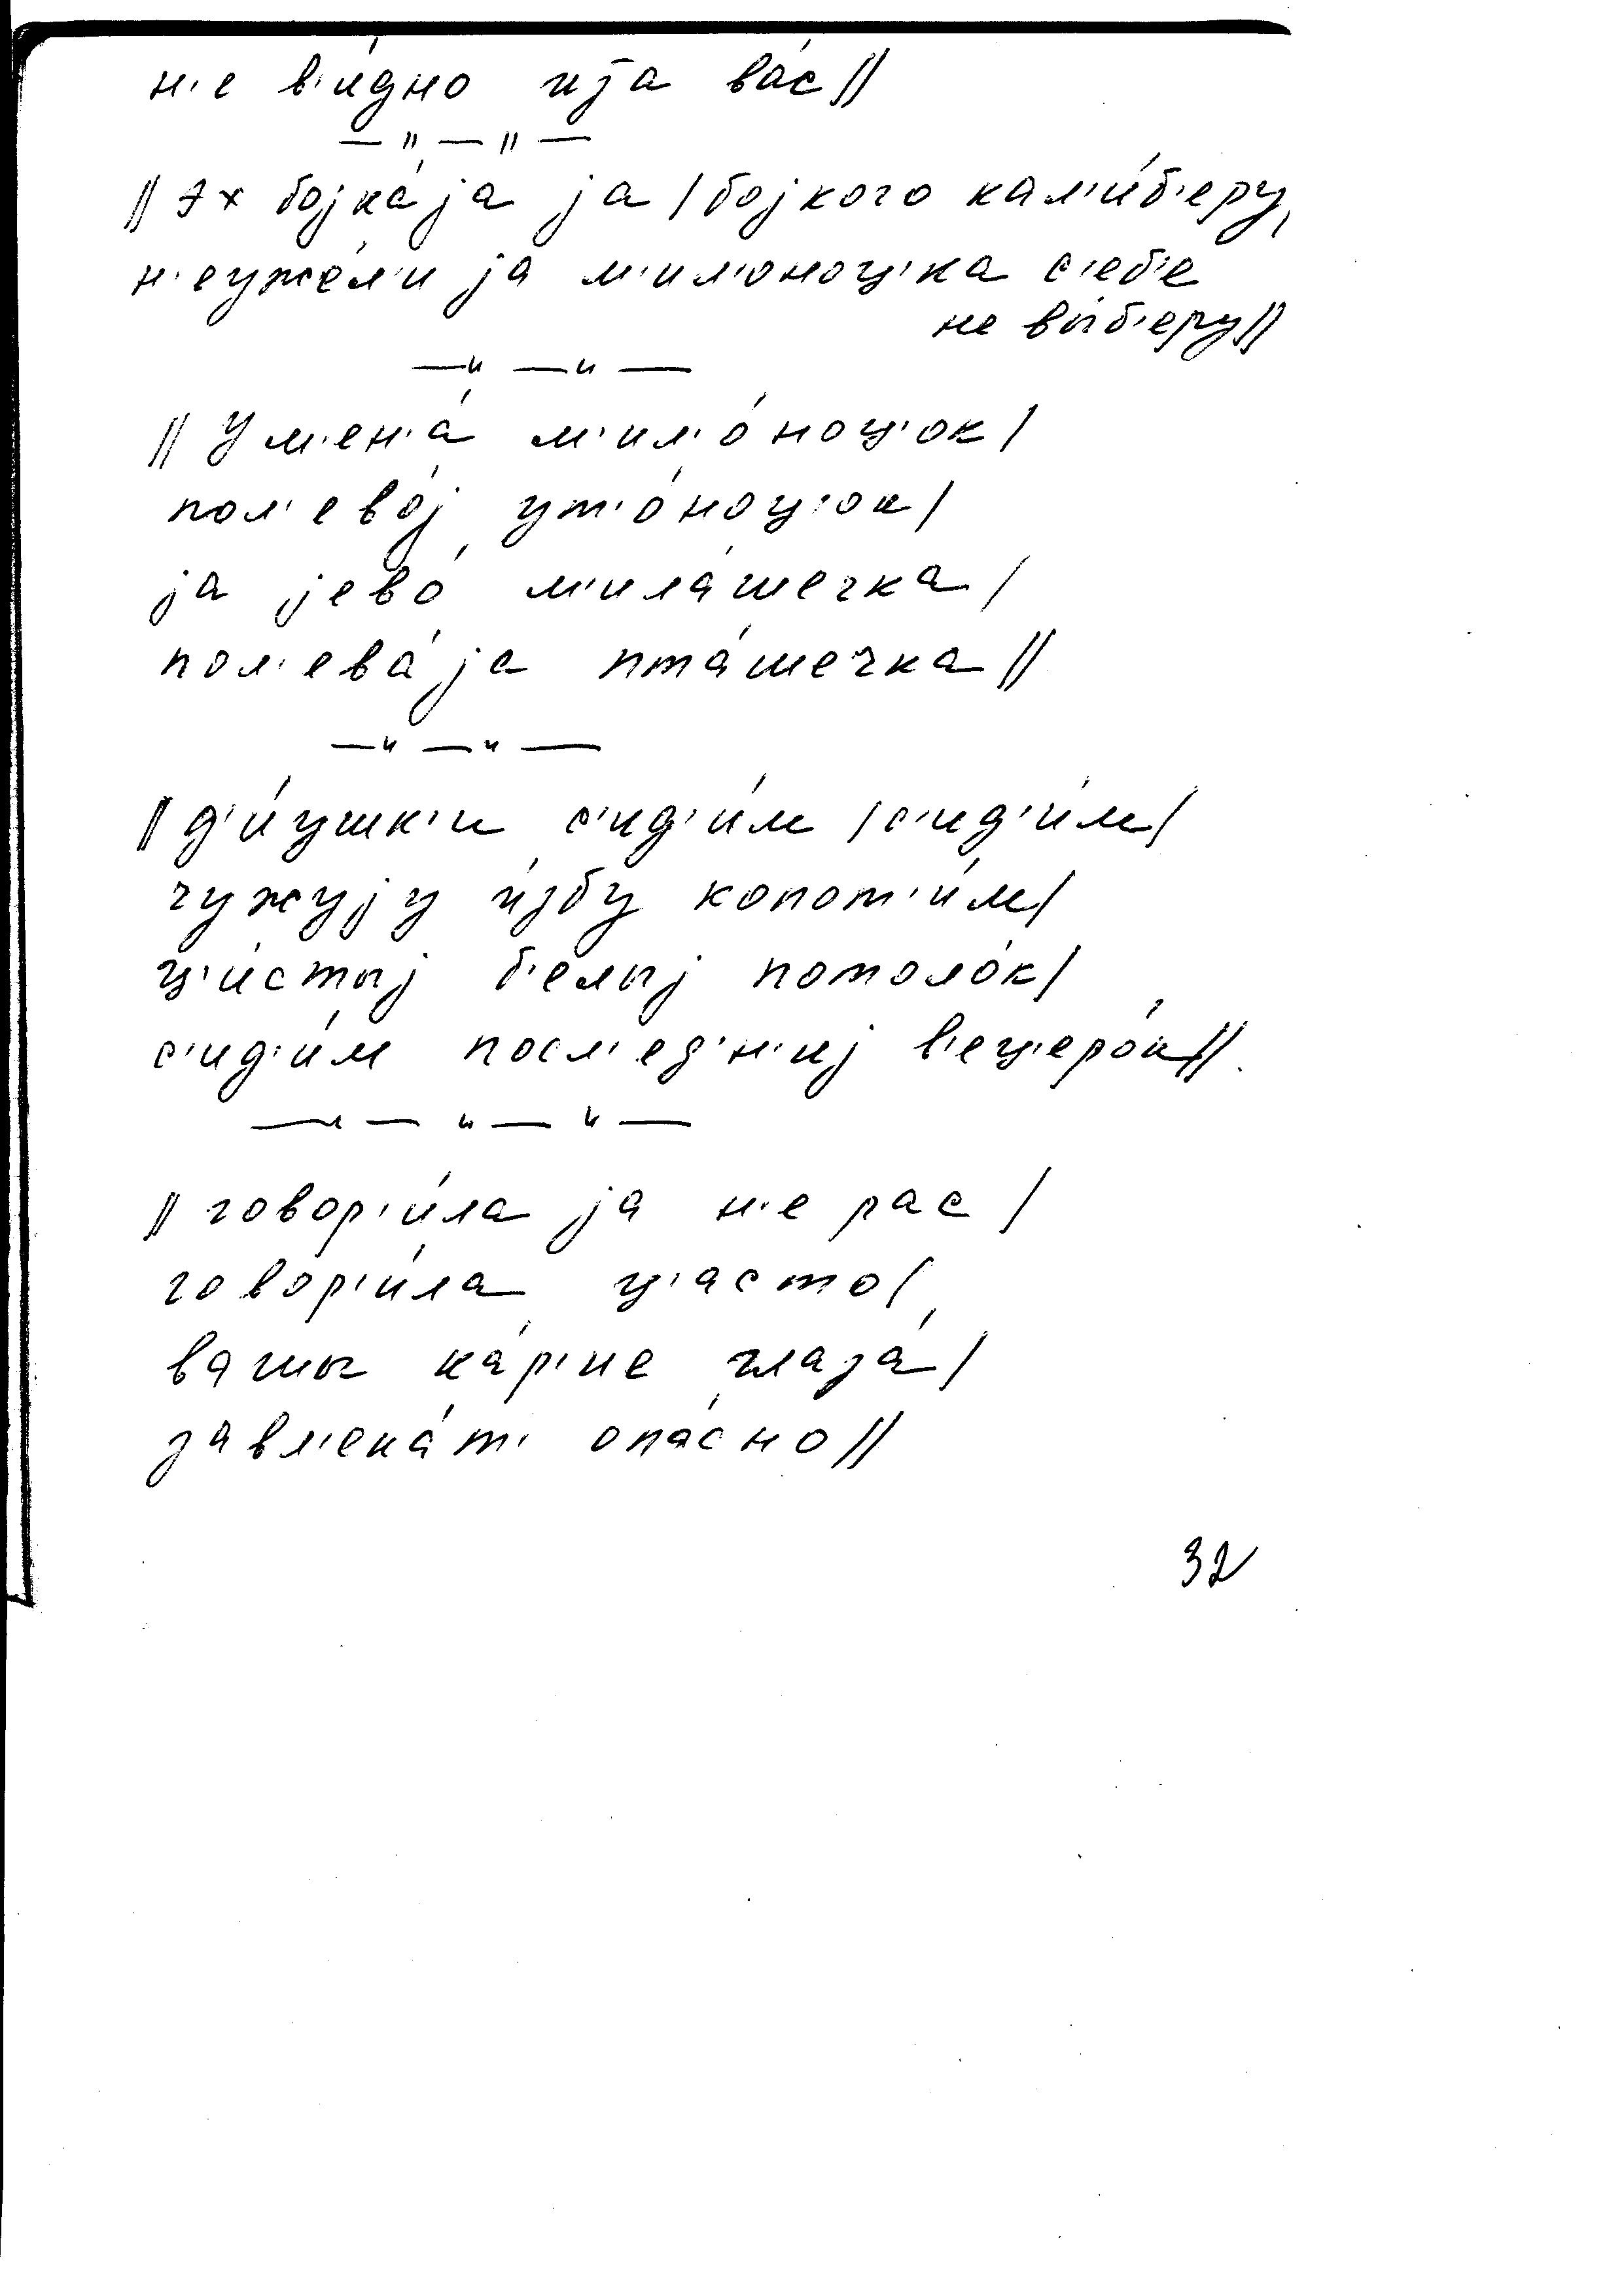 н'е в'и́дно иӡа ва́с//
— " — " —
// Эх бојка́ја ја / бојкого кал'и́б'еру,
н'еуже́л'и ја м'ил'о́ноц'ка с'еб'е
не вы́б'еру//
— " — " —
// У м'ен'а́ м'ил'о́ноц'ок /
пол'ево́ј ут'о́ноц'ок /
ја јево́ м'ила́шечка /
пол'ева́ја пта́шечка //
— " — " —
// д'и́ушк'и с'ид'и́м / с'ид'и́м /
чужују и́збу копот'и́м /
ц'и́стыј б'елыј потоло́к /
с'ид'и́м посл'ед'н'иј в'ец'еро́к //.
— " — " — " —
// говор'и́ла ја н'е рас /
говор'и́ла ц'асто /
вашы ка́р'ие глаза́ /
завл'ека́т' опа́сно //
32